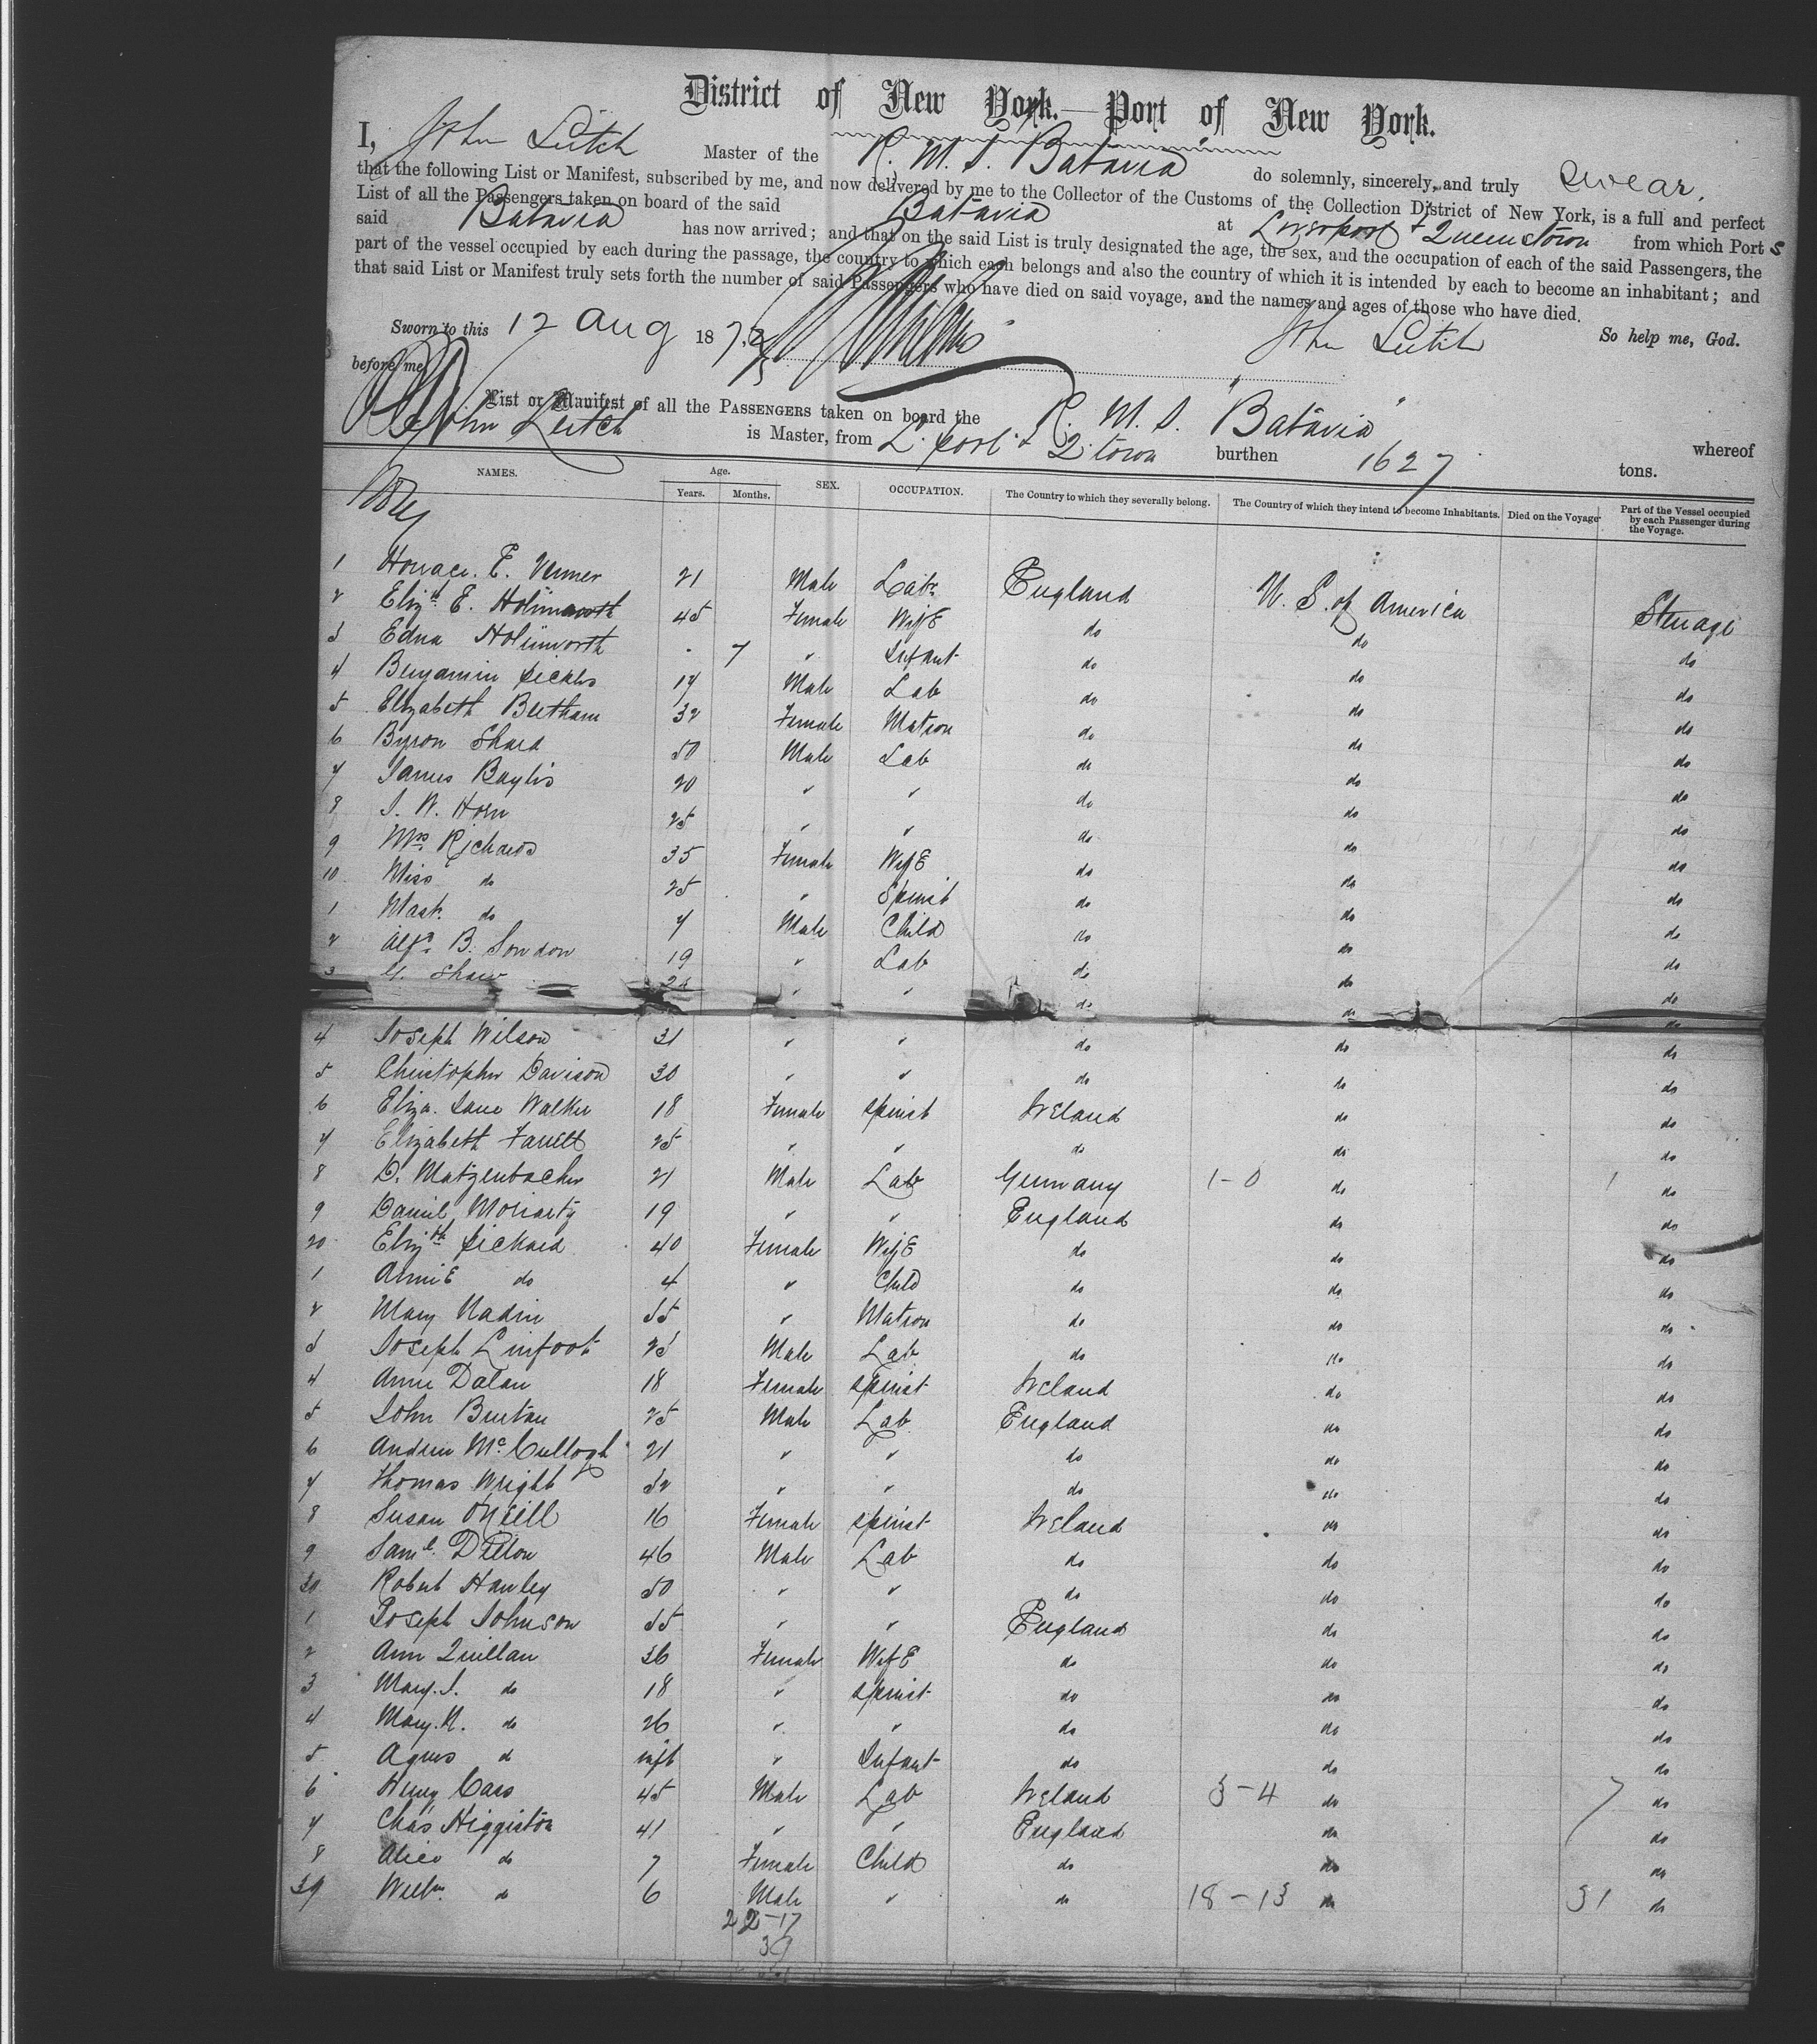 District of New York.—Port of New York.
I, John Leitch Master of the R. M. S. Batavia do solemnly, sincerely, and truly swear,
that the following List or Manifest, subscribed by me, and now delivered by me to the Collector of the Customs of the Collection District of New York, is a full and perfect
List of all the Passengers taken on board of the said Batavia at Liverpool + Queenstown from which Port s
said Batavia has now arrived; and that on the said List is truly designated the age, the sex, and the occupation of each of the said Passengers, the
part of the vessel occupied by each during the passage, the country to which each belongs and also the country of which it is intended by each to become an inhabitant; and
that said List or Manifest truly sets forth the number of said Passengers who have died on said voyage, and the names and ages of those who have died.
Sworn to this 12 Aug 187 So help me, God.
before me John Leitch
List or Manifest of all the PASSENGERS taken on board the R. M. S. "Batavia" whereof
John Leitch is Master, from L'pool + Q'town burthen 1627 tons.
NAMES. Age. Years. Months. SEX. OCCUPATION. The Country to which they severally belong. The Country of which they intend to become Inhabitants. Died on the Voyage Part of the Vessel occupied by each Passenger during the Voyage.
1 Horace. E. Venner 21 Male Labr England U. S. of America Steerage
2 Elizth E. Holinworth 45 Female Wife do do do
3 Edna Holinworth . 7 " Infant do do do
4 Benjamin Pickles 17 Male Lab do do do
5 Elizabeth Beetham 32 Female Matron do do do
6 Byron Shard 50 Male Lab do do do
7 James Baylis 20 " " do do do
8 J. W. Horn 25 " " do do do
9 Mrs Richards 35 Female Wife do do do
10 Miss do 25 " Spinst do do do
1 Mast. do 7 Male Child do do do
2 Alfd B. London 19 " Lab do do do
3 G. Shaw " " do do do
4 Joseph Wilson 31 " " do do do
5 Christopher Davison 30 " " do do do
6 Eliza. Jane Walker 18 Female Spinst Ireland do do
7 Elizabeth Farrell 25 " " do do do
8 D. Matzenbacher 21 Male Lab Germany 1-0 do 1 do
9 Daniel Moriarty 19 " " England do do
20 Elizth Pickard 40 Female Wife do do do
1 Annie do 4 " Child do do do
2 Mary Nadin 55 " Matron do do do
3 Joseph Linfoot 23 Male Lab do do do
4 Anne Dolan 18 Female Spinst Ireland do do
5 John Burton 25 Male Lab England do do
6 Andrew McCullogh 21 " " do do do
7 Thomas Wright 32 " " do do do
8 Susan O'Neill 16 Female Spinst Ireland do do
9 Saml. Dillon 46 Male Lab do do do
30 Robert Hanley 50 " " do do do
1 Joseph Johnson 55 " " England do do
2 Ann Quillan 36 Female Wife do do do
3 Mary. J. do 18 " Spinst do do do
4 Mary. N. do 26 " " do do do
5 Agnes do inft " Infant do do do
6 Henry Cass 45 Male Lab Ireland 3-4 do 7 do
7 Chas Higginton 41 " " England do do
8 Alice do 7 Female Child do do do
39 Willm. do 6 Male " do 18-13 do 31 do
22-17
39